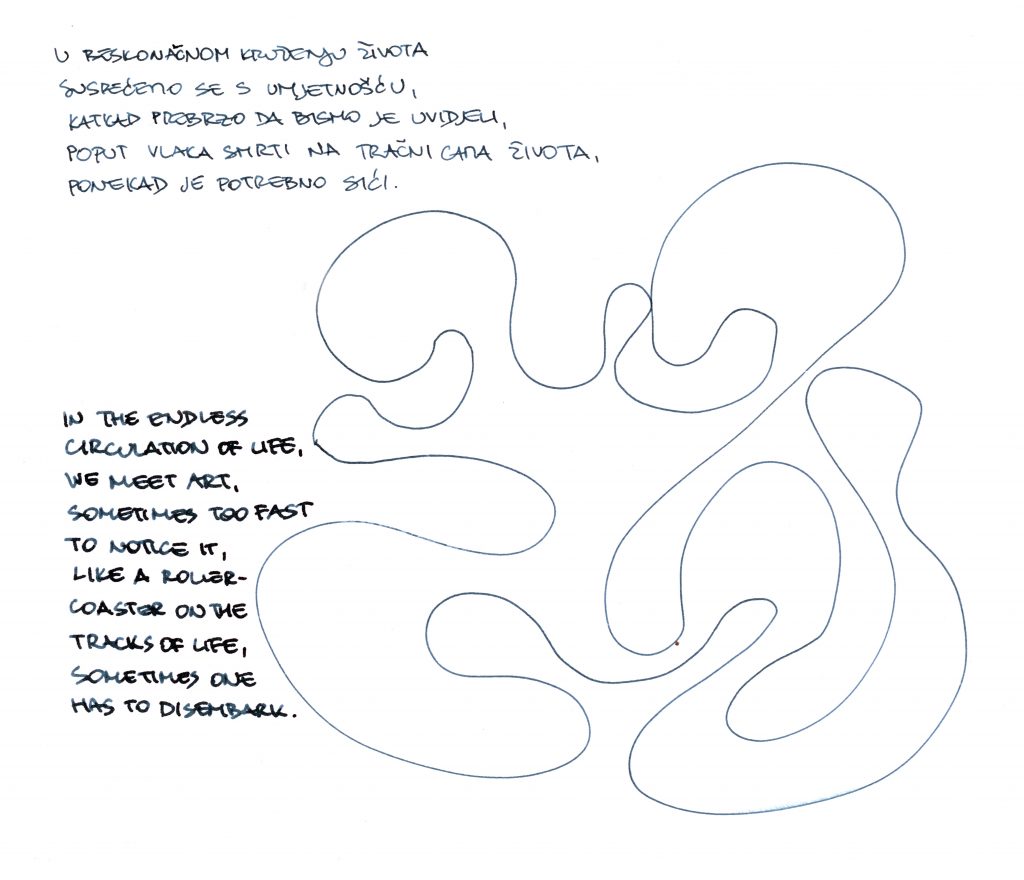 U BESKONAČNOM KRUŽENJU ŽIVOTA
SUSREĆEMO SE S UMJETNOŠĆU,
KATKAD PREBRZO DA BISMO JE UVIDJELI,
POPUT VLAKA SMRTI NA TRAČNICAMA ŽIVOTA,
PONEKAD JE POTREBNO SIĆI.
IN THE ENDLESS
CIRCULATION OF LIFE,
WE MEET ART,
SOMETIMES TOO FAST
TO NOTICE IT,
LIKE A ROLLER-
COASTER ON THE
TRACKS OF LIFE,
SOMETIMES ONE
HAS TO DISEMBARK.